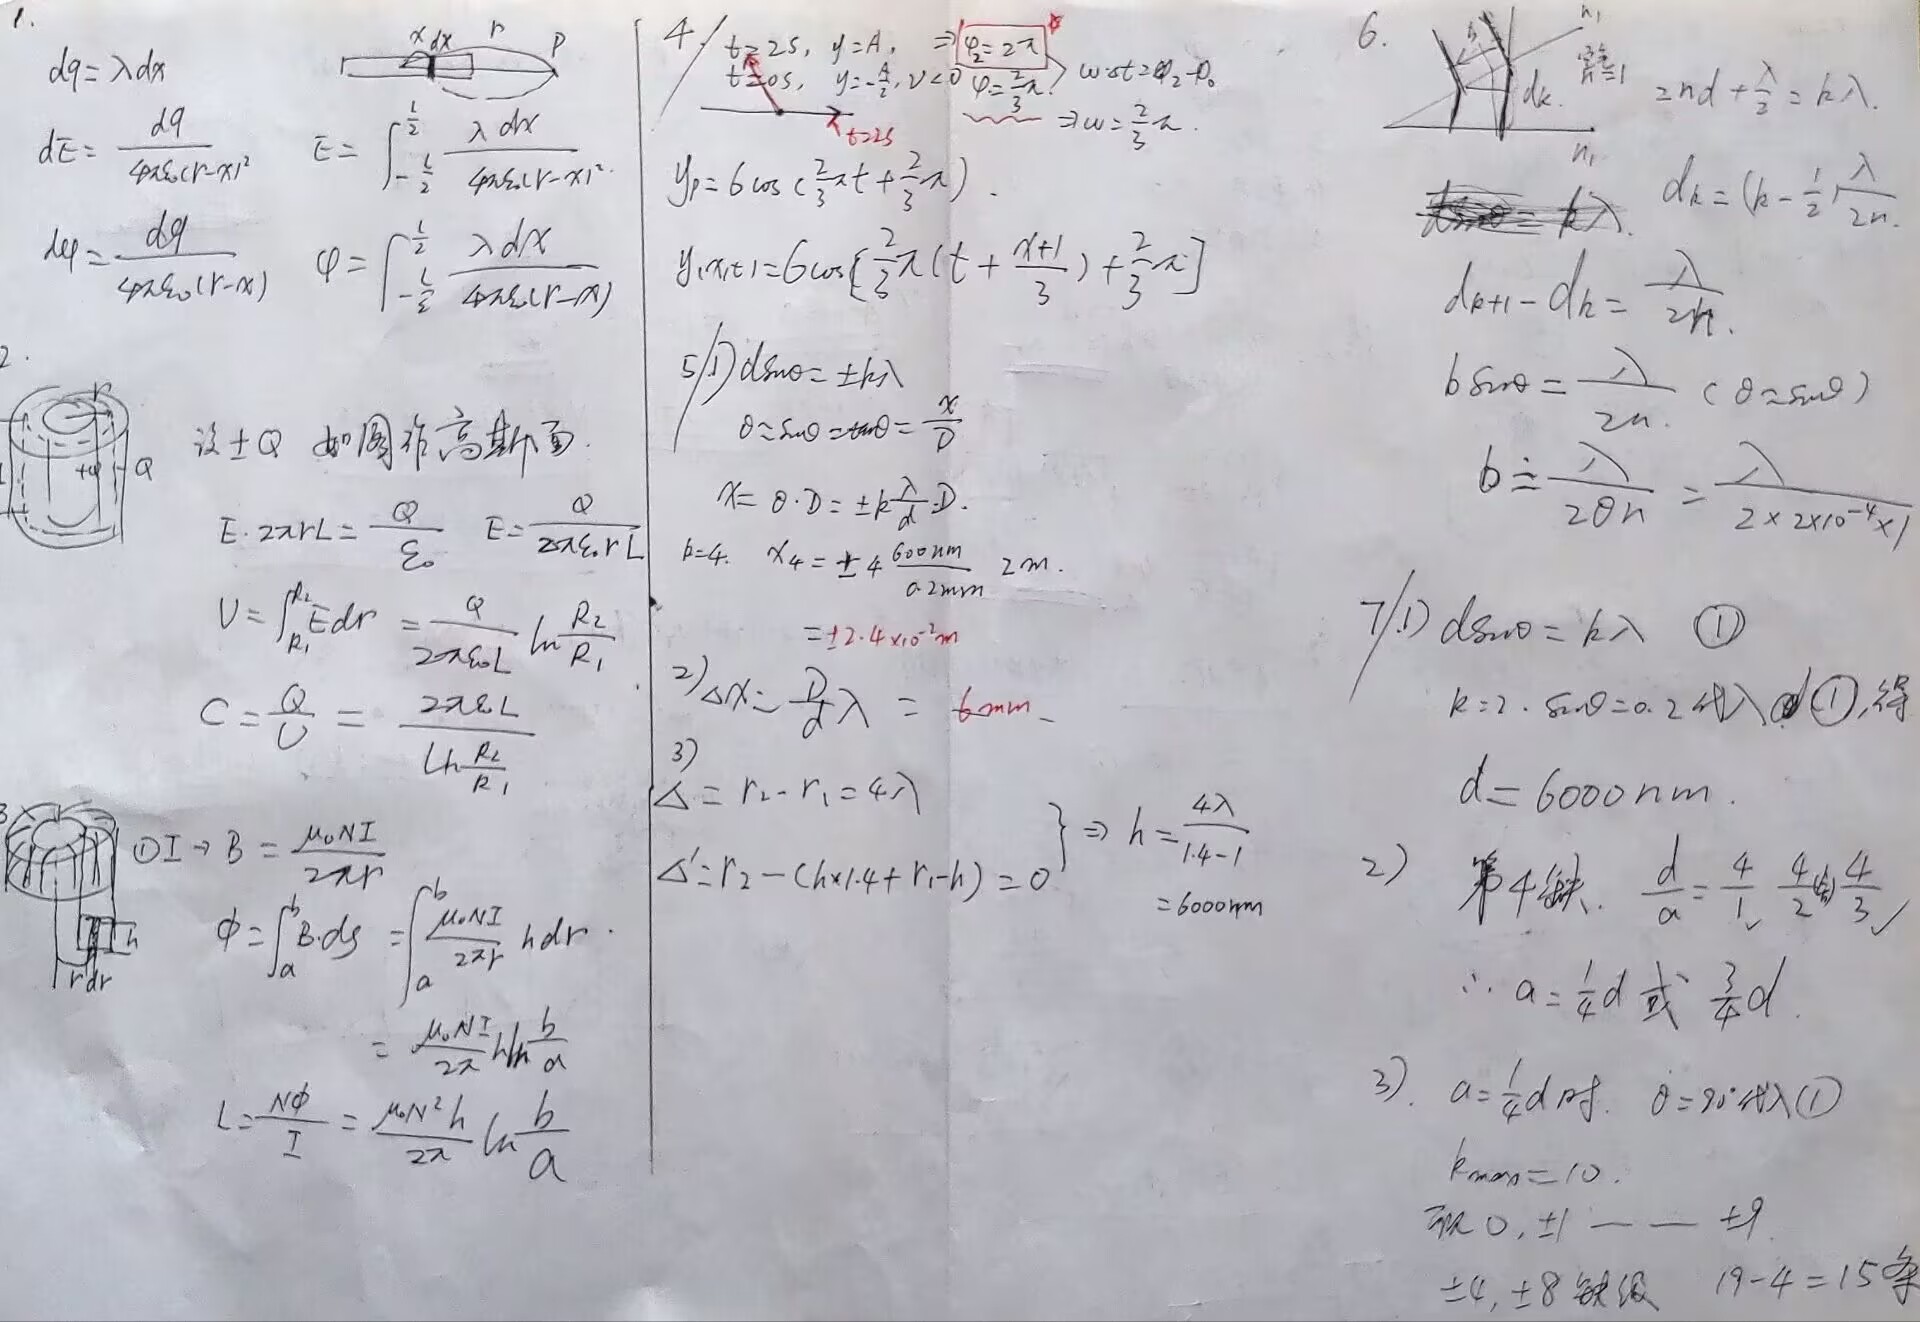 1.
x dx r P
dq = λdx
dE = dq / 4πε₀(r-x)²  E = ∫_{-L/2}^{L/2} λdx / 4πε₀(r-x)²
dφ = dq / 4πε₀(r-x)  φ = ∫_{-L/2}^{L/2} λdx / 4πε₀(r-x)
2.
r
+Q -Q
设±Q 如图作高斯面.
E·2πrL = Q/ε₀  E = Q / 2πε₀rL
U = ∫_{R₁}^{R₂} E dr = Q / 2πε₀L ln R₂/R₁
C = Q/U = 2πε₀L / ln R₂/R₁
3
① I → B = μ₀NI / 2πr
h
r dr
Φ = ∫_a^b B·ds = ∫_a^b μ₀NI / 2πr hdr.
= μ₀NI / 2π h ln b/a
L = NΦ / I = μ₀N²h / 2π ln b/a
4/ t=2s, y=A, ⇒ φ₂=2π
t=0s, y=-A/2, v<0 φ=2/3π } ω·Δt=φ₂-φ₀
t=2s ⇒ω=2/3π.
yₚ=6cos(2/3πt+2/3π).
y(x,t)=6cos[2/3π(t+(x+1)/3)+2/3π]
5/ 1) dsinθ=±kλ
θ≈sinθ=tanθ=x/D
x=θ·D=±kλ/d·D.
k=4. x₄=±4 600nm/0.2mm 2m.
=±2.4×10⁻²m
2) Δx=D/d λ = 6mm
3)
Δ=r₂-r₁=4λ
Δ'=r₂-(h×1.4+r₁-h)=0 } ⇒ h=4λ/(1.4-1)
=6000nm
6.
b n₁
dk.
n=1
n₁
2nd+λ/2=kλ.
dsinθ=kλ.
dₖ=(k-1/2)λ/2n.
dₖ₊₁-dₖ=λ/2n.
bsinθ=λ/2n. (θ≈sinθ)
b≐λ/2θn=λ/2×2×10⁻⁴×1
7/ 1) dsinθ=kλ ①
k=2. sinθ=0.2代入①,得
d=6000nm.
2) 第4缺. d/a=4/1✓ 4/2 4/3✓
∴ a=1/4d 或 3/4d.
3). a=1/4d时. θ=90°代入①
kmax=10.
取0,±1 — — ±9
±4,±8缺级 19-4=15条